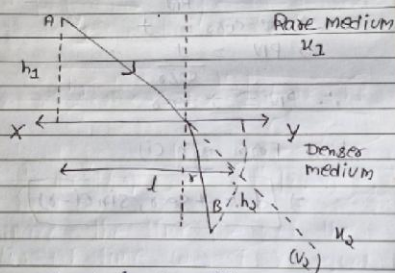 A
Rare medium
u1
h1
X
Y
Denser
medium
l
r
B
h2
u2
(v2)